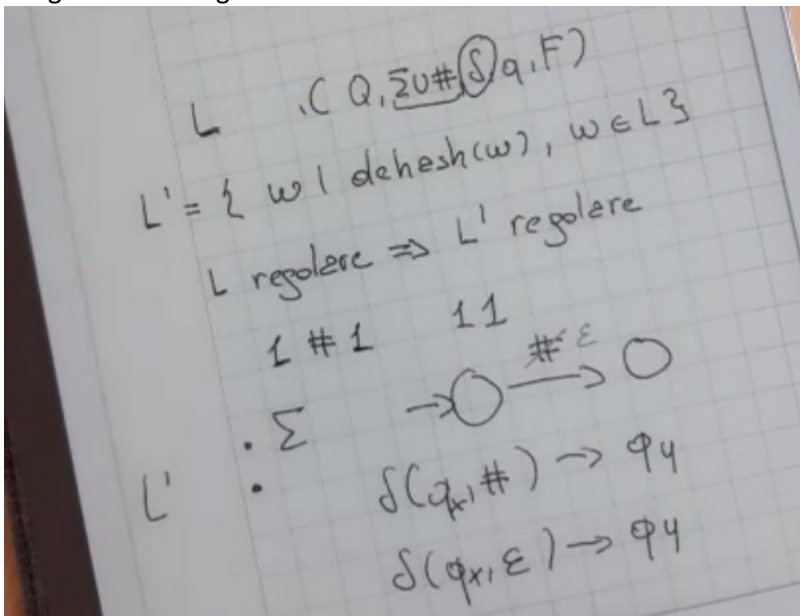 L .( Q, Σ∪# δ q, F)
L' = { w | dehesh(w), w ∈ L }
L regolare => L' regolare
1 # 1 11
# ε
· Σ
L' ·
δ(qx, #) → qy
δ(qx, ε) → qy